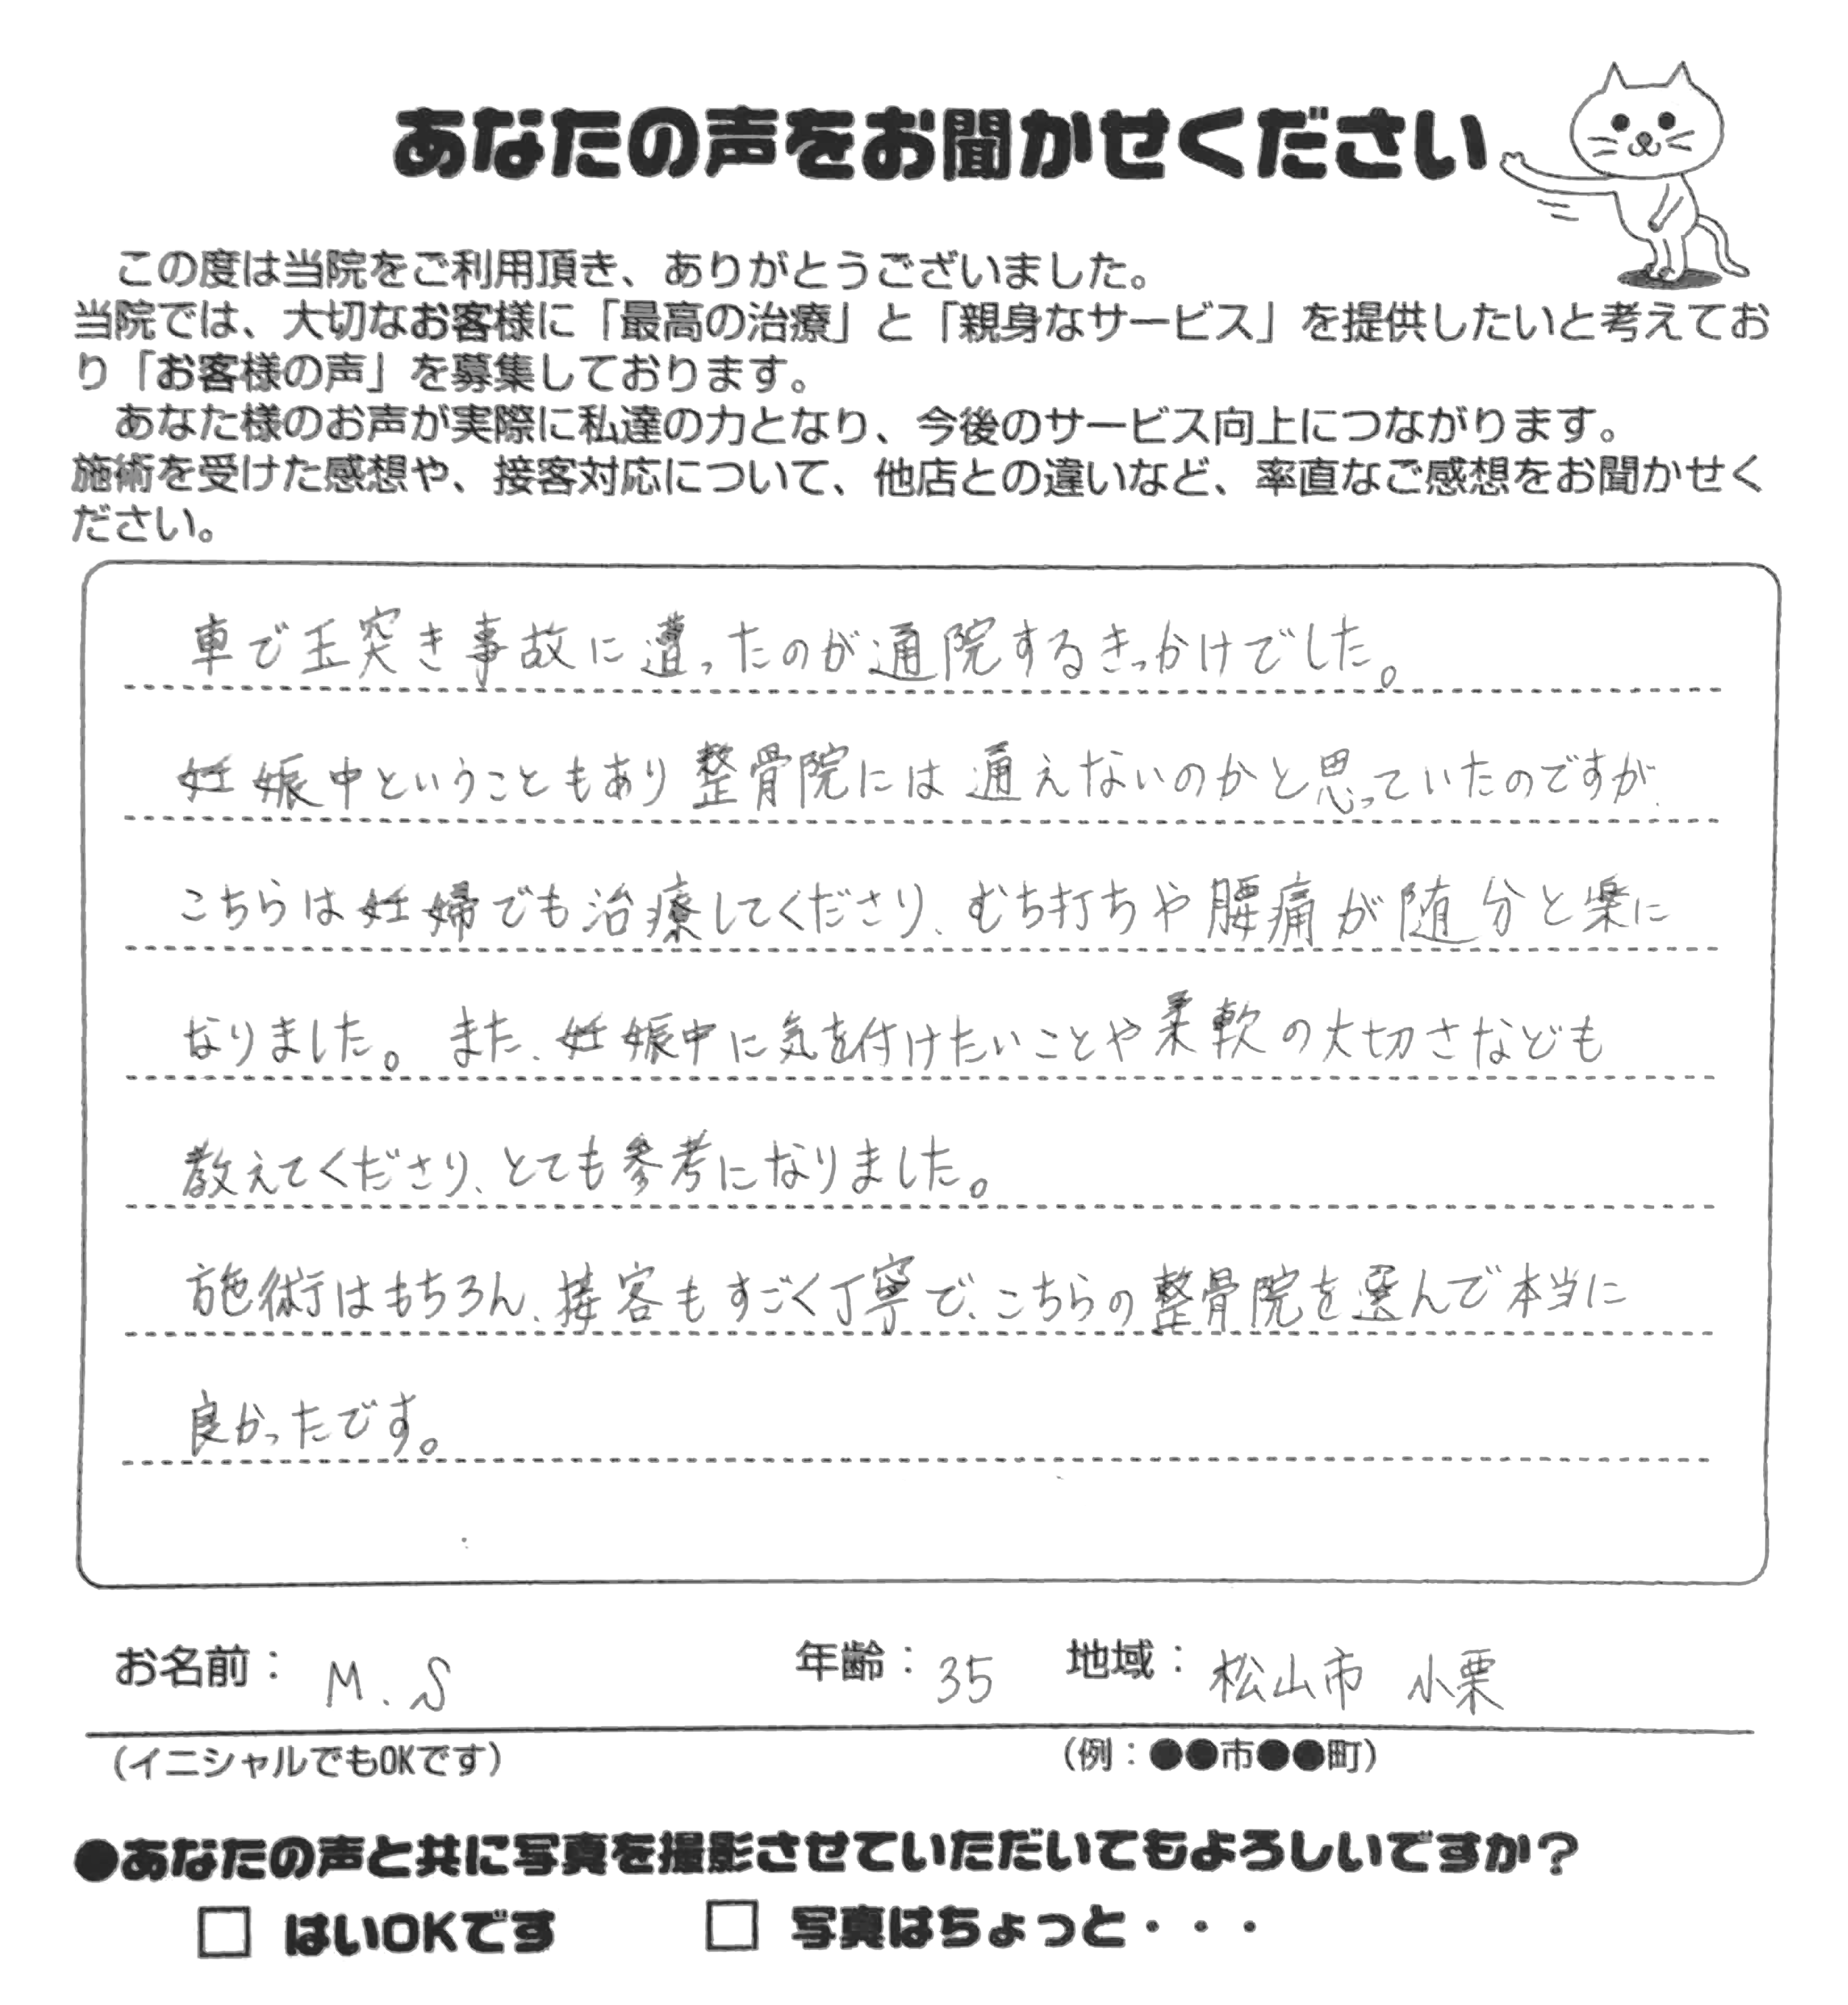 あなたの声をお聞かせください
この度は当院をご利用頂き、ありがとうございました。
当院では、大切なお客様に「最高の治療」と「親身なサービス」を提供したいと考えてお
り「お客様の声」を募集しております。
あなた様のお声が実際に私達の力となり、今後のサービス向上につながります。
施術を受けた感想や、接客対応について、他店との違いなど、率直なご感想をお聞かせく
ださい。
車で玉突き事故に遭ったのが通院するきっかけでした。
妊娠中ということもあり整骨院には通えないのかと思っていたのですが、
こちらは妊婦でも治療してくださり、むち打ちや腰痛が随分と楽に
なりました。また、妊娠中に気を付けたいことや柔軟の大切さなども
教えてくださり、とても参考になりました。
施術はもちろん、接客もすごく丁寧で、こちらの整骨院を選んで本当に
良かったです。
お名前： M.S 年齢： 35 地域： 松山市 小栗
（イニシャルでもOKです） （例：●●市●●町）
●あなたの声と共に写真を撮影させていただいてもよろしいですか？
□ はいOKです □ 写真はちょっと・・・